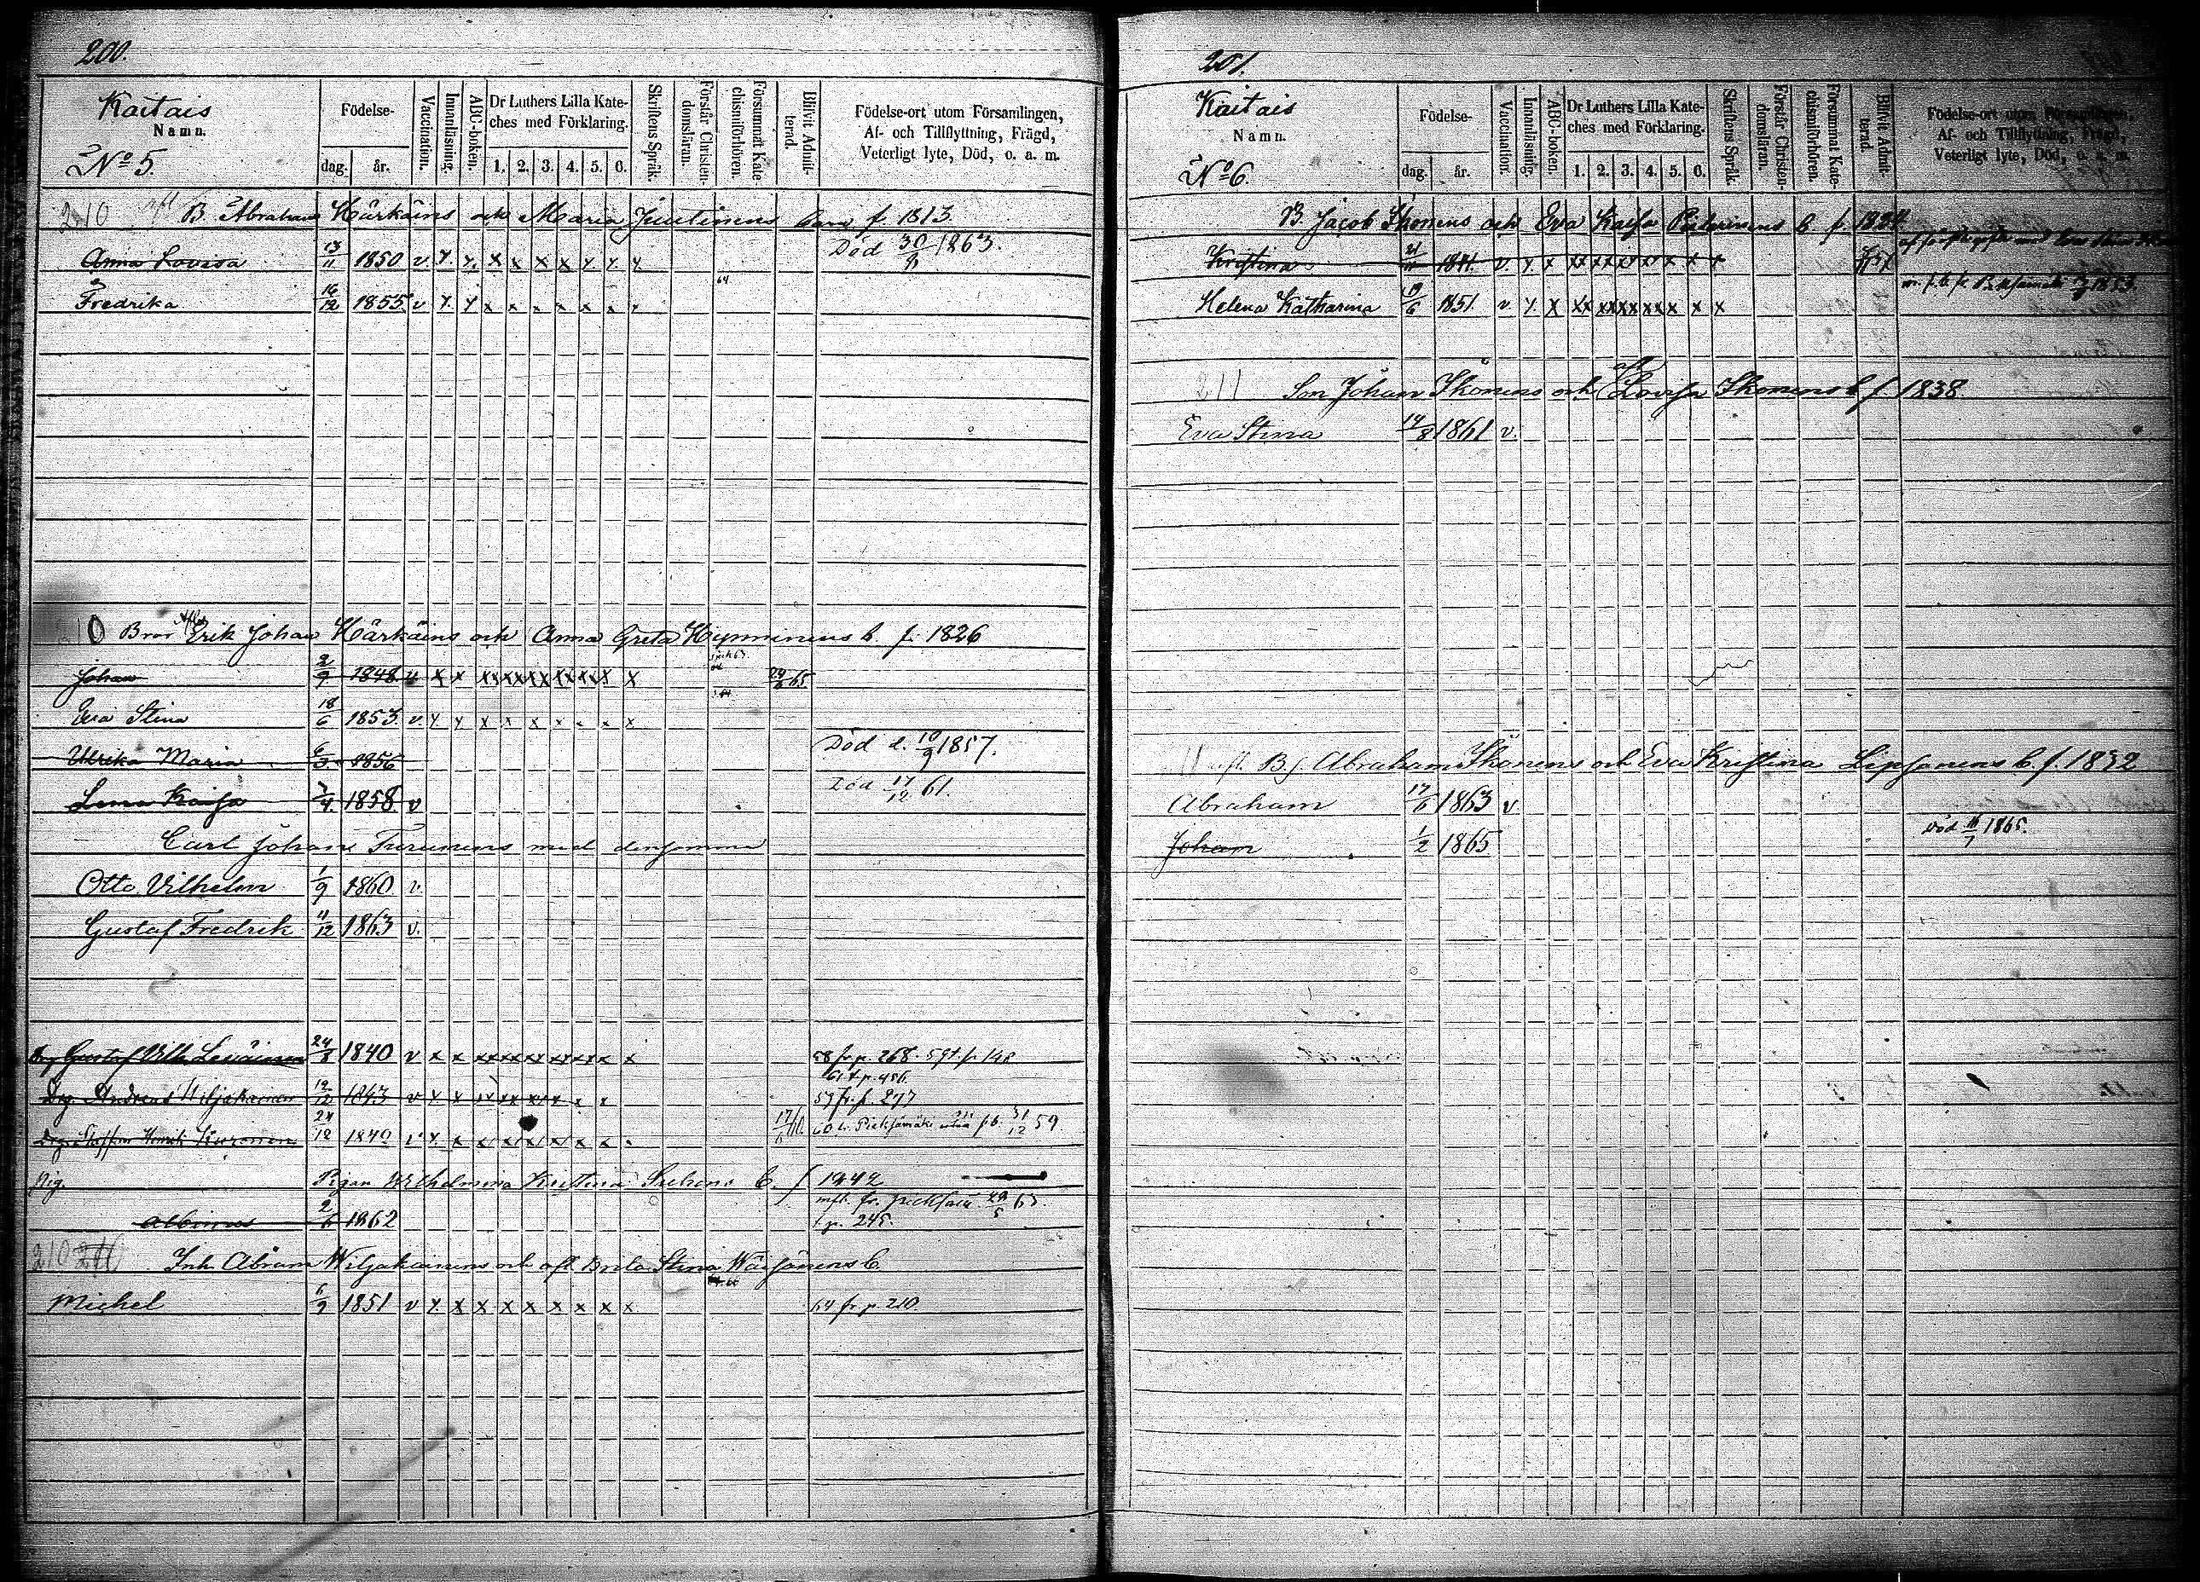 200.
Kaitais
Namn.
No 5.
Födelse-
dag.
år.
Vaccination.
Innanläsning.
ABC-boken.
Dr Luthers Lilla Kate-
ches med Förklaring.
1. 2. 3. 4. 5. 6.
Skriftens Språk.
Förstår Christen-
domsläran.
Försummat Kate-
chismiförhören.
Blifvit Admit-
terad.
Födelse-ort utom Församlingen,
Af- och Tillflyttning, Frägd,
Veterligt lyte, Död, o. a. m.
210 B. Abraham Härkäins och Maria Juutinens barn f. 1813.
Anna Lovisa 13/11 1850 v. Död 30/11 1863.
64
Fredrika 16/12 1855 v
Bror Erik Johan Härkäins och Anna Greta Hynninens b. f. 1826
Johan 2/9 1848 v 24/6 65
Eva Stina 18/6 1853 v
Ulrika Maria 6/3 1856 Död d. 10/9 1857.
Lena Kaisa 7/4 1858 v Död 17/12 61.
Carl Johan Turunens med densamma
Otto Vilhelm 1/9 1860 v.
Gustaf Fredrik 11/12 1863 v.
Drg Gustaf Vilh. 24/8 1840 v 58 fr p. 268. 59 t. p. 148
61 t. p. 456.
Drg. Andreas Wiljakainen 19/12 1843 v 57 fr. p. 277
Drg. Staffan Henrik 24/12 1840 v 17/6 60. 60 t. Pieksämäki 31/12 59
Pig. Pigan Wilhelmina Kristina b. f 1842
Albinus 2/6 1862 fr. 63.
t p. 245.
210 Inh. Abram Wiljakainens och Brita Stina Wäisänens b.
Michel 6/9 1851 v 64 fr p 210
201.
Kaitais
Namn.
No 6.
Födelse-
dag.
år.
Vaccination.
Innanläsning.
ABC-boken.
Dr Luthers Lilla Kate-
ches med Förklaring.
1. 2. 3. 4. 5. 6.
Skriftens Språk.
Förstår Christen-
domsläran.
Försummat Kate-
chismiförhören.
Blifvit Admit-
terad.
Födelse-ort utom Församlingen,
Af- och Tillflyttning, Frägd,
Veterligt lyte, Död, o. a. m.
B. Jacob Ikonens och Eva Kaisa b f. 1824
Kristina v.
Helena Katharina 19/6 1851. v
211 Son Johan Ikonens och Lovisa Ikonens b f. 1838.
Eva Stina 14/8 1861 v.
11 Abraham Ikonens och Eva Kristina Lipsanens b. f. 1832
Abraham 17/6 1863 v.
Johan 1/2 1865 Död 16/7 1865.